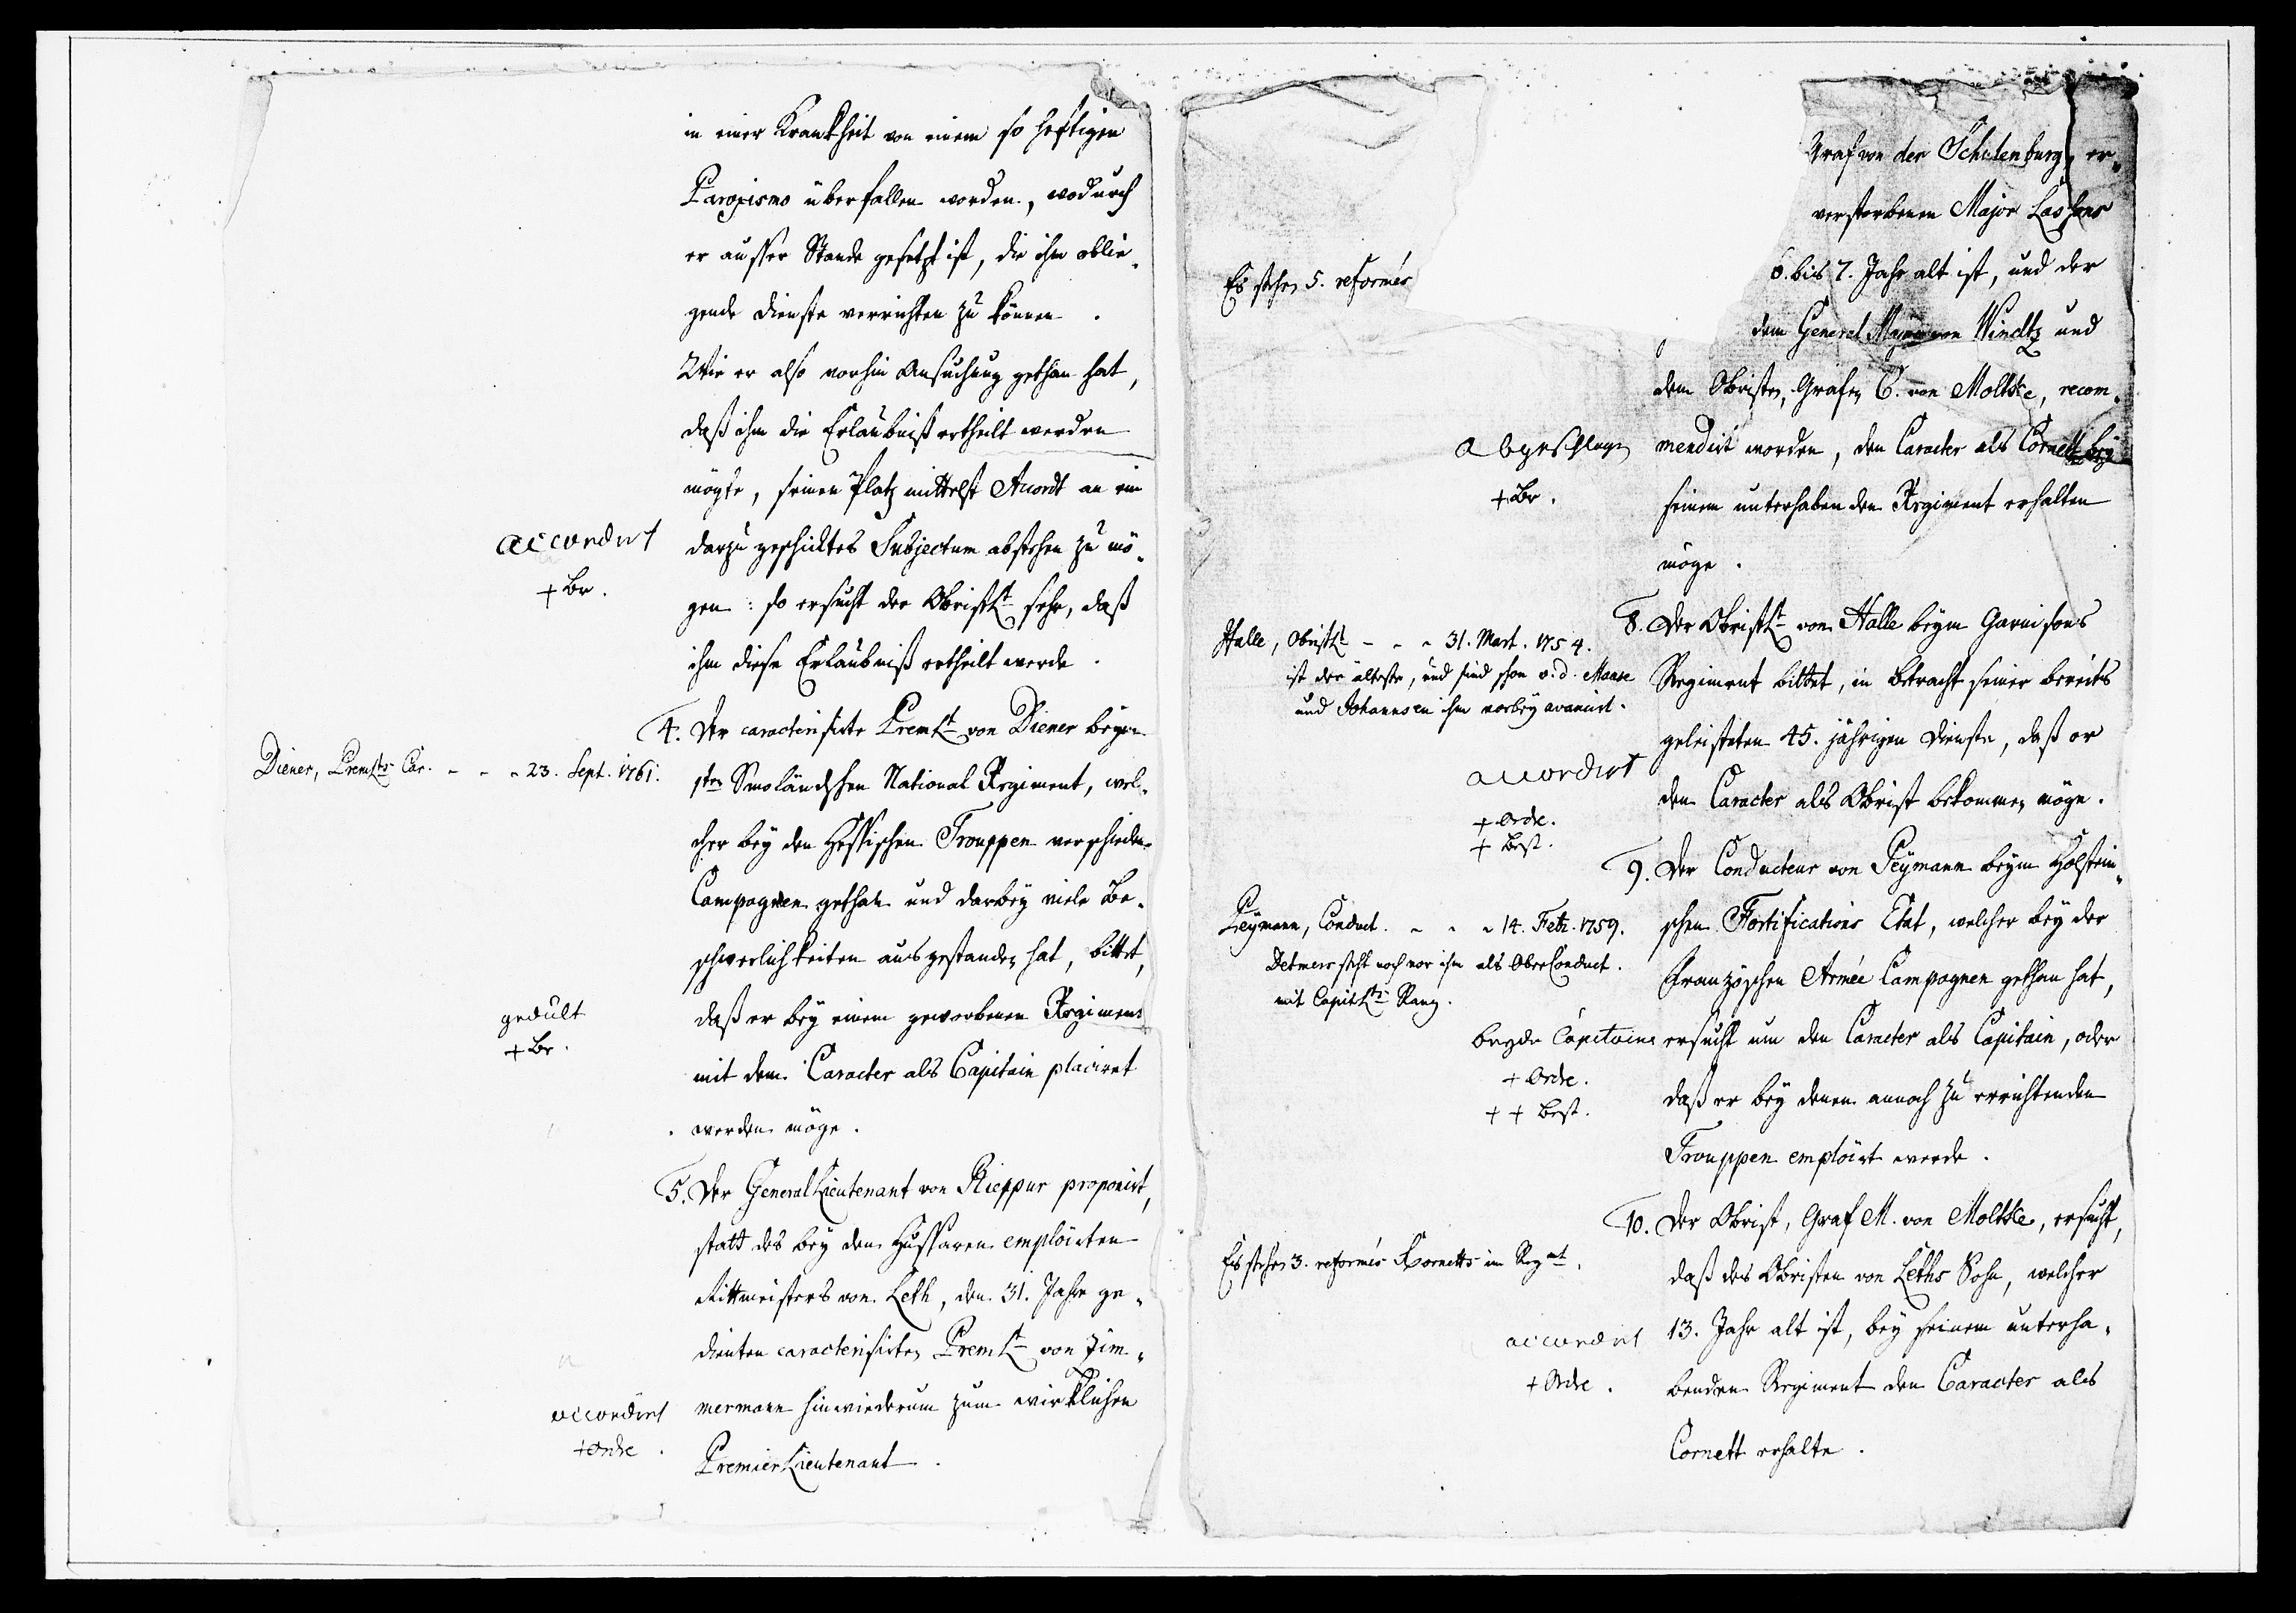 in einer Krankheit von einem so heftigen
Paroxismo überfallen worden, wodurch
er ausser Stande gesetzt ist, die ihm oblie„
gende Dienste verrichten zu können.
Wie er also vorhin Ansuchung gethan hat,
daß ihm die Erlaubniß ertheilt werden
mögte, seinen Platz mittelst Accordt an ein
accordirt
darzu geschicktes Subjectum abstehen zu mö„
+ Br.
gen: so ersucht der ObristLt sehr, daß
ihm diese Erlaubniß ertheilt werde.
4. Der caracterisirte PremLt von Diener beym
Diener, PremLts Car. - - - 23. Sept. 1761.
1ten Smoländschen National Regiment, wel„
cher bey den Hessischen Trouppen verschiedene
Campagnen gethan und darbey viele Be„
schwerlichkeiten ausgestanden hat, bittet,
gedult
daß er bey einem geworbenen Regiment
+ Br.
mit dem Caracter als Capitain placiret
werden möge.
5. Der GeneralLieutenant von Rieppur proponirt,
statt des bey den Hussaren emploirten
Rittmeisters von Leth, den 31. Jahre ge„
dienten caracterisirten PremLt von Zim„
accordirt
mermann hinwiederum zum wirklichen
+ Ordre.
PremierLieutenant.
Graf von der Schulenburg, er„
verstorbenen Major
6. bis 7. Jahr alt ist, und der
Es stehen 5. reformés
dem General Major von Vindtz und
dem Obristen, Grafen C. von Moltke, recom„
abgeschlagen
mendirt worden, den Caracter als Cornett bey
+ Br.
seinem unterhabenden Regiment erhalten
möge.
8. Der ObristLt von Halle beym Garnisons
Halle, ObristLt - - - 31. Mart. 1754.
ist der älteste, und sind schon v. d. Maase
und Johannsen ihm vorbey avancirt.
Regiment bittet, in Betracht seiner bereits
geleisteten 45. jährigen Dienste, daß er
accordirt
den Caracter als Obrist bekommen möge.
+ Ordr.
+ Best.
9. Der Conducteur von Peymann beym Holstein„
Peymann, Conduct. - - - 14. Febr. 1759.
schen Fortifications Etat, welcher bey der
Detmers steht noch vor ihm als OberConduct.
mit CapitLts Rang.
Französchen Armée Campagnen gethan hat,
beyde Capitains
ersucht um den Caracter als Capitain, oder
+ Ordre.
+ + Best.
daß er bey denen annoch zu errichtenden
Trouppen emploirt werde.
10. Der Obrist, Graf M. von Moltke, ersucht,
Es stehen 3. reformés Kornetts im Regmt.
daß des Obristen von Leths Sohn, welcher
accordirt
13. Jahr alt ist, bey seinem unterha„
+ Ordre.
benden Regiment den Caracter als
Cornett erhalte.